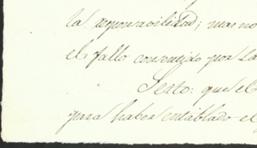 la responsavilidad; mas no
el fallo convenido por la
Sesto: que el
para haber entablado el